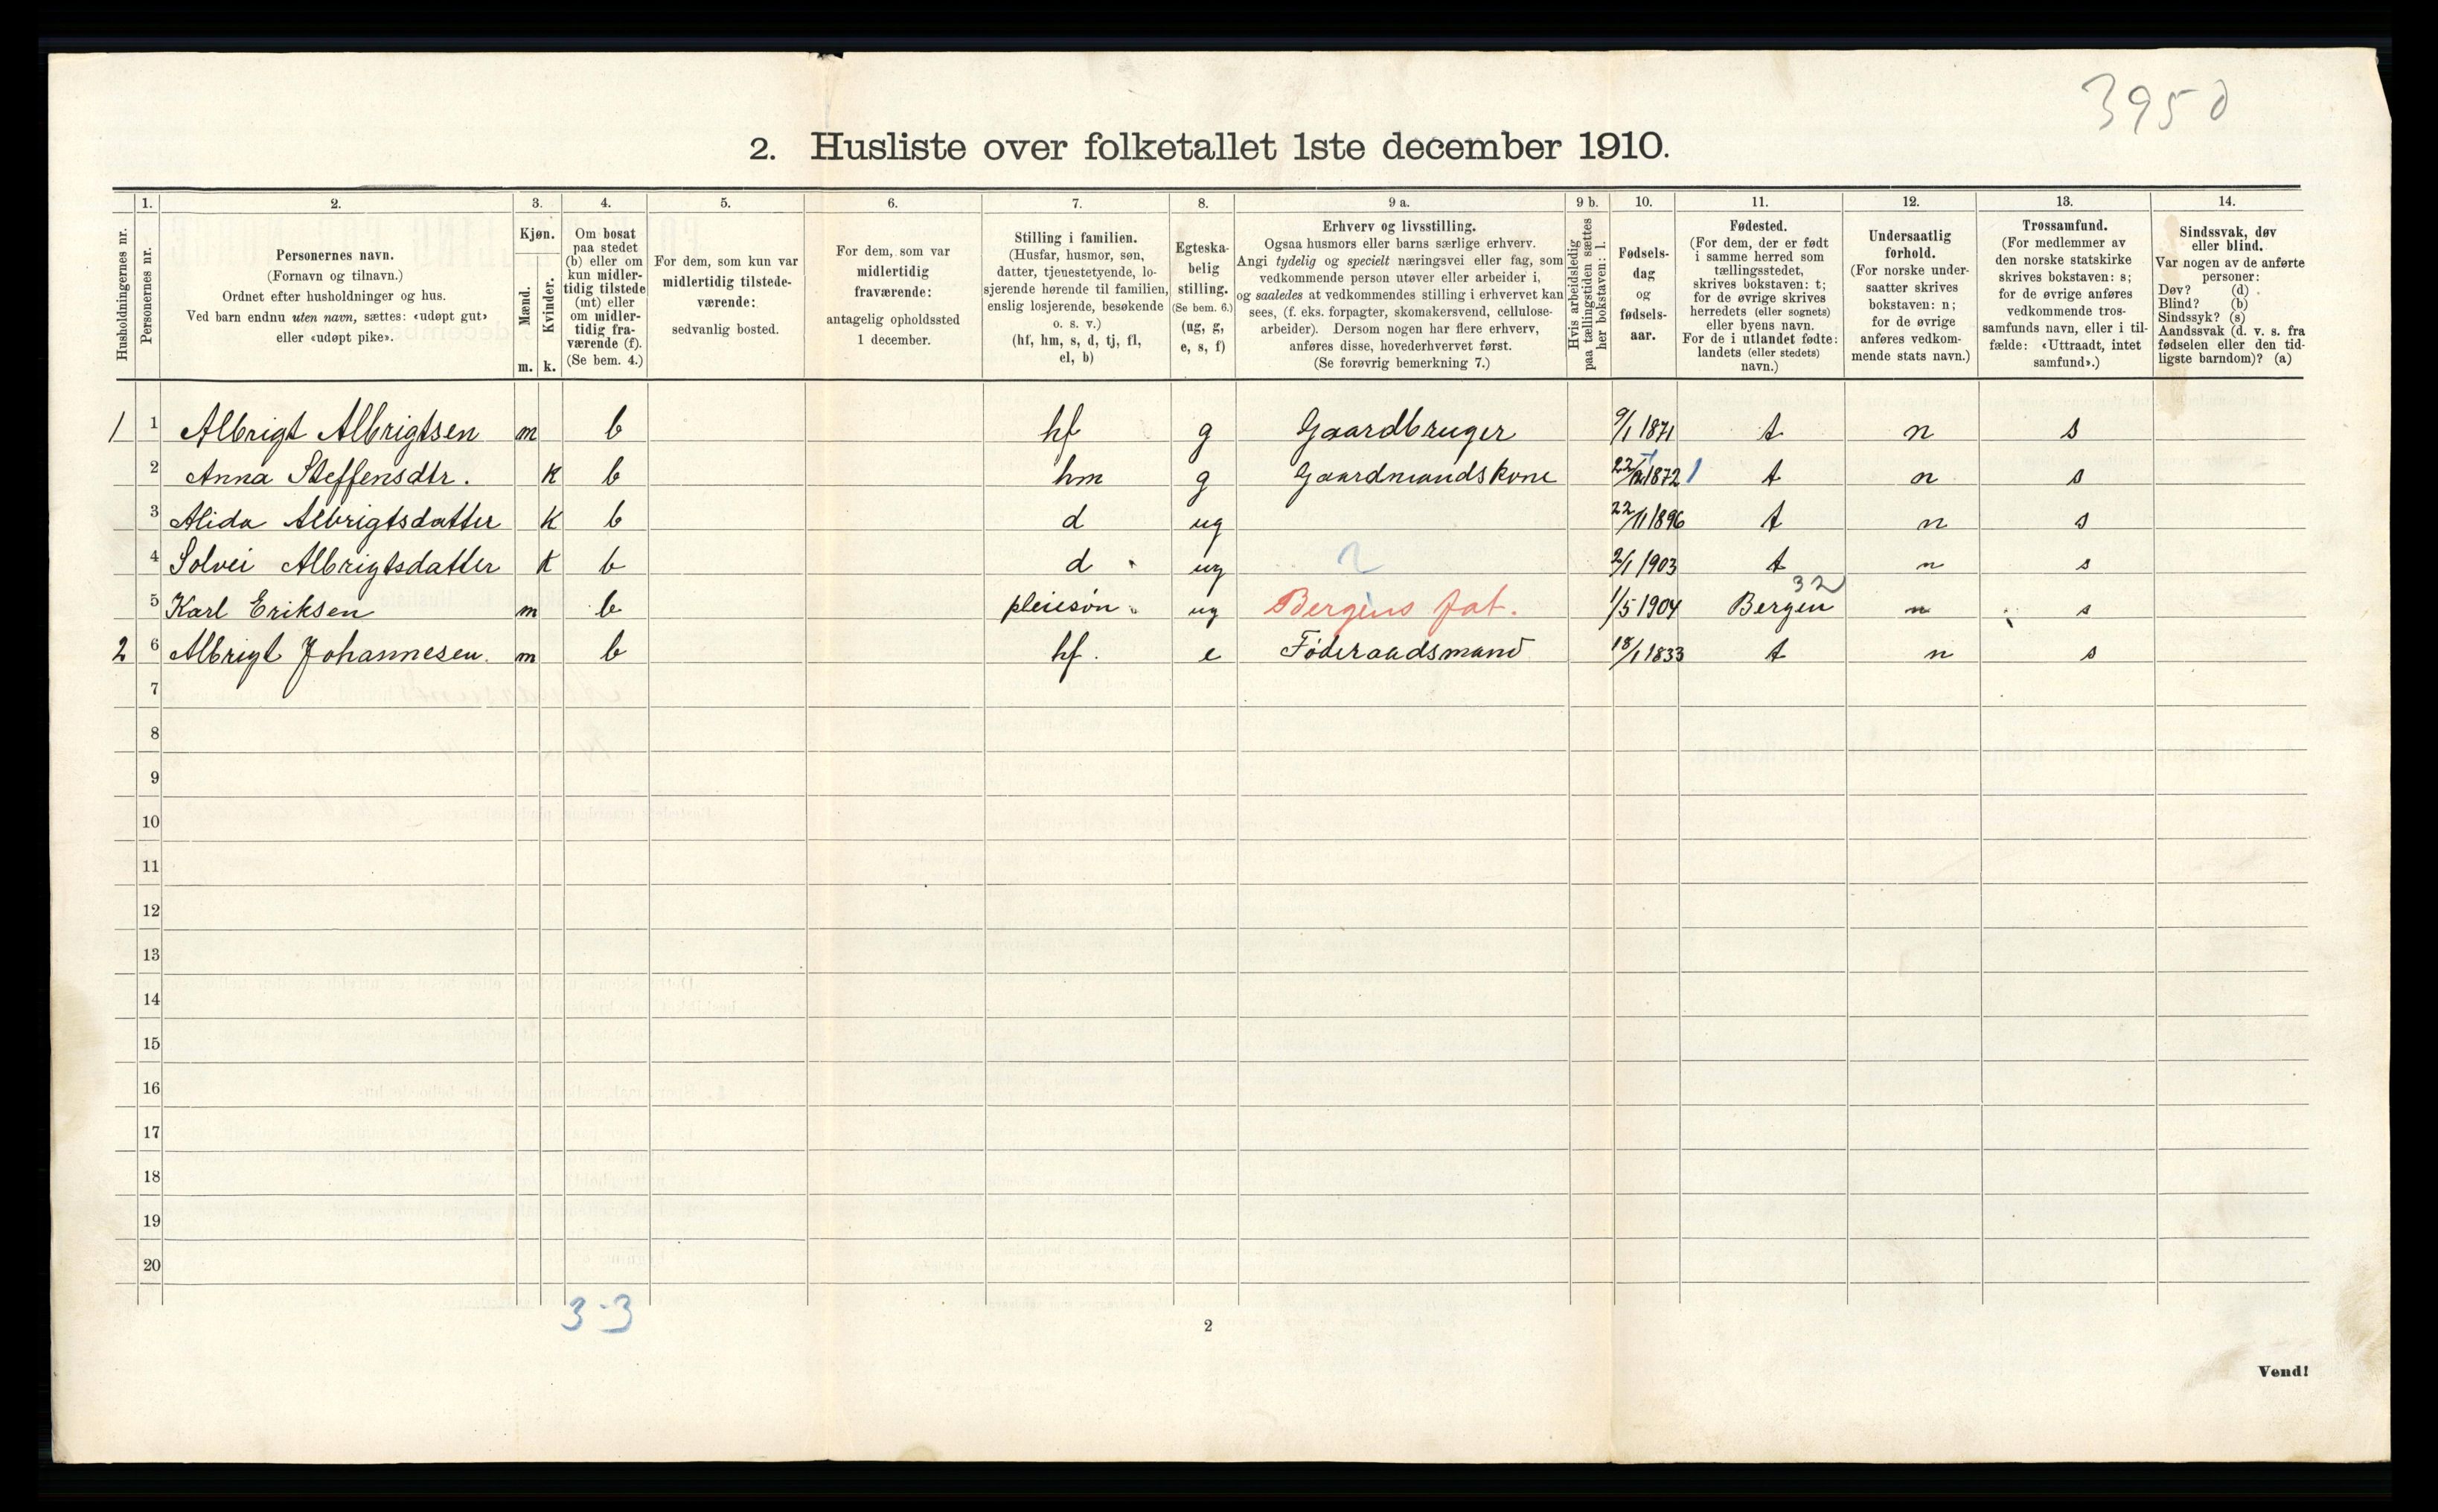 3950
2. Husliste over folketallet 1ste december 1910.
1. 2. 3. 4. 5. 6. 7. 8. 9 a. 9 b. 10. 11. 12. 13. 14.
Husholdningernes nr.
Personernes nr.
Personernes navn.
(Fornavn og tilnavn.)
Ordnet efter husholdninger og hus.
Ved barn endnu uten navn, sættes: «udøpt gut»
eller «udøpt pike».
Kjøn.
Mænd.
Kvinder.
m. k.
Om bosat
paa stedet
(b) eller om
kun midler-
tidig tilstede
(mt) eller
om midler-
tidig fra-
værende (f).
(Se bem. 4.)
For dem, som kun var
midlertidig tilstede-
værende:
sedvanlig bosted.
For dem, som var
midlertidig
fraværende:
antagelig opholdssted
1 december.
Stilling i familien.
(Husfar, husmor, søn,
datter, tjenestetyende, lo-
sjerende hørende til familien,
enslig losjerende, besøkende
o. s. v.)
(hf, hm, s, d, tj, fl,
el, b)
Egteska-
belig
stilling.
(Se bem. 6.)
(ug, g,
e, s, f)
Erhverv og livsstilling.
Ogsaa husmors eller barns særlige erhverv.
Angi tydelig og specielt næringsvei eller fag, som
vedkommende person utøver eller arbeider i,
og saaledes at vedkommendes stilling i erhvervet kan
sees, (f. eks. forpagter, skomakersvend, cellulose-
arbeider). Dersom nogen har flere erhverv,
anføres disse, hovederhvervet først.
(Se forøvrig bemerkning 7.)
Hvis arbeidsledig
paa tællingstiden sættes
her bokstaven: l.
Fødsels-
dag
og
fødsels-
aar.
Fødested.
(For dem, der er født
i samme herred som
tællingsstedet,
skrives bokstaven: t;
for de øvrige skrives
herredets (eller sognets)
eller byens navn.
For de i utlandet fødte:
landets (eller stedets)
navn.)
Undersaatlig
forhold.
(For norske under-
saatter skrives
bokstaven: n;
for de øvrige
anføres vedkom-
mende stats navn.)
Trossamfund.
(For medlemmer av
den norske statskirke
skrives bokstaven: s;
for de øvrige anføres
vedkommende tros-
samfunds navn, eller i til-
fælde: «Uttraadt, intet
samfund».)
Sindssvak, døv
eller blind.
Var nogen av de anførte
personer:
Døv? (d)
Blind? (b)
Sindssyk? (s)
Aandssvak (d. v. s. fra
fødselen eller den tid-
ligste barndom)? (a)
1 1 Albrigt Albrigtsen m b hf g Gaardbruger 9/1 1871 t n s
2 Anna Steffensdtr. K b hm g Gaardmandskone 22/ 1872 1 t n s
3 Alida Albrigtsdatter K b d ug 22/11 1896 t n s
4 Solvei Albrigtsdatter K b d ug 2 2/1 1903 t n s
32
5 Karl Eriksen m b pleiesøn ug Bergens fat. 1/5 1904 Bergen n s
2 6 Albrigt Johannesen. m b hf. e Føderaadsmand 18/1 1833 t n s
7
8
9
10
11
12
13
14
15
16
17
18
19
20
3-3
2
Vend!